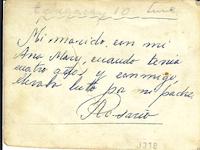 10
Mi marido, con mi
Ana Mary, cuando tenia
cuatro años y conmigo,
llevaba luto por mi padre,
Rosario